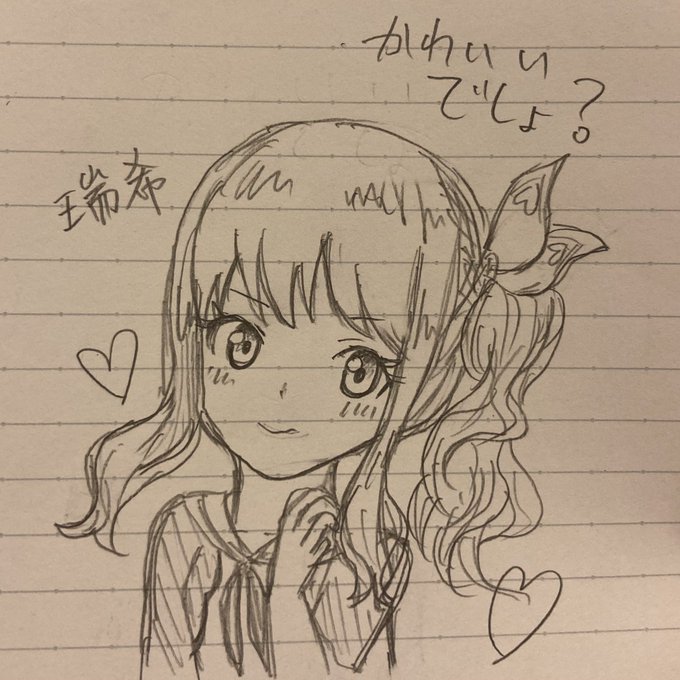 かわいい
でしょ?
瑞希